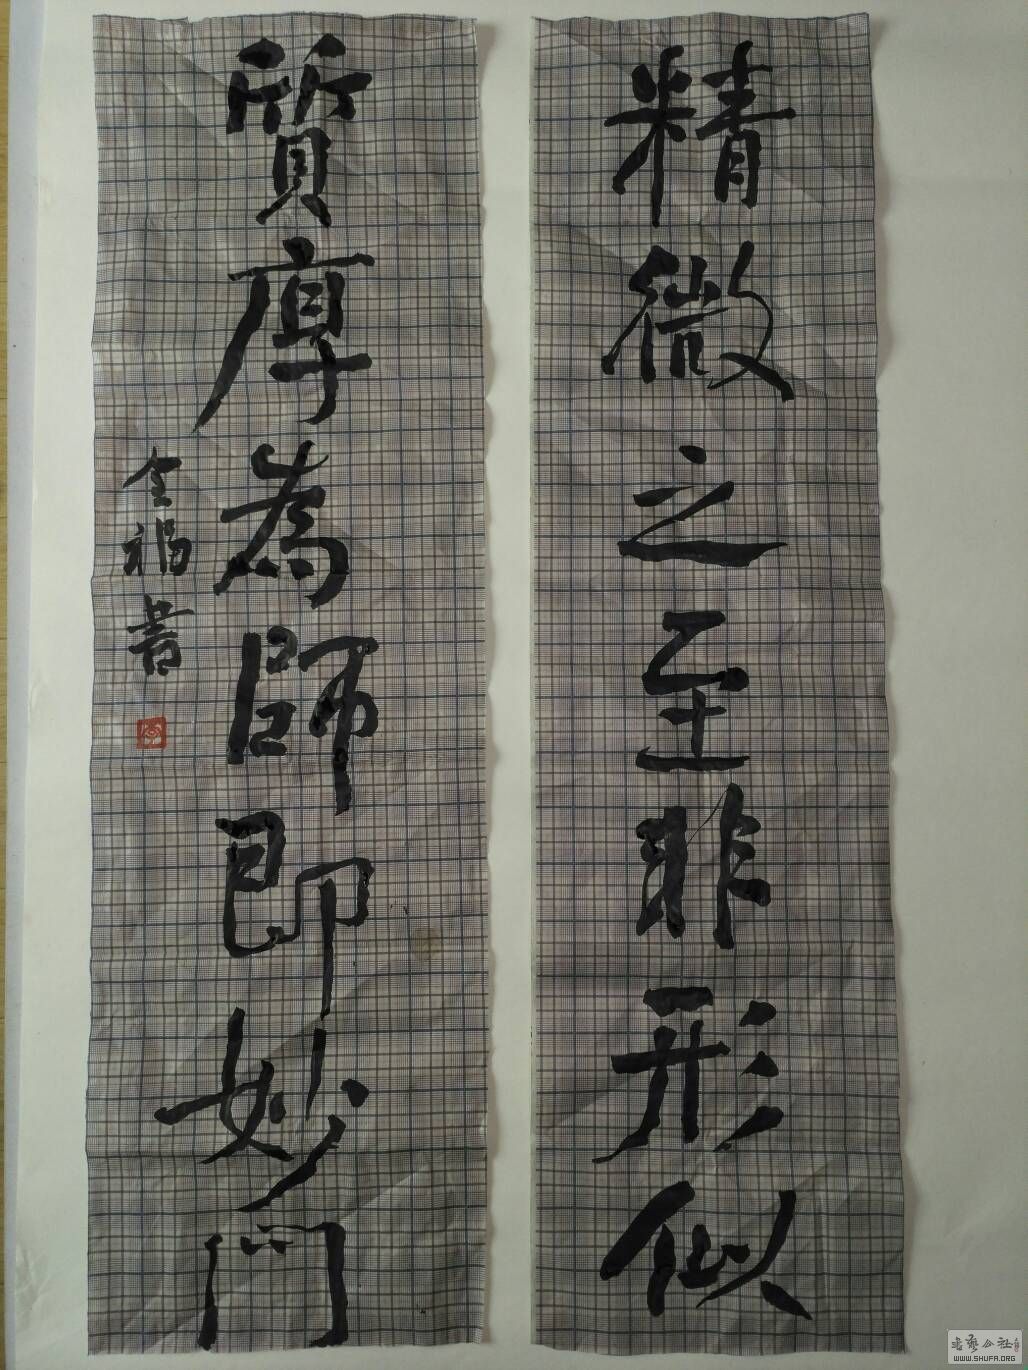 精微之至非形似
質厚為師即妙門
全福書
书艺公社
WWW.SHUFA.ORG